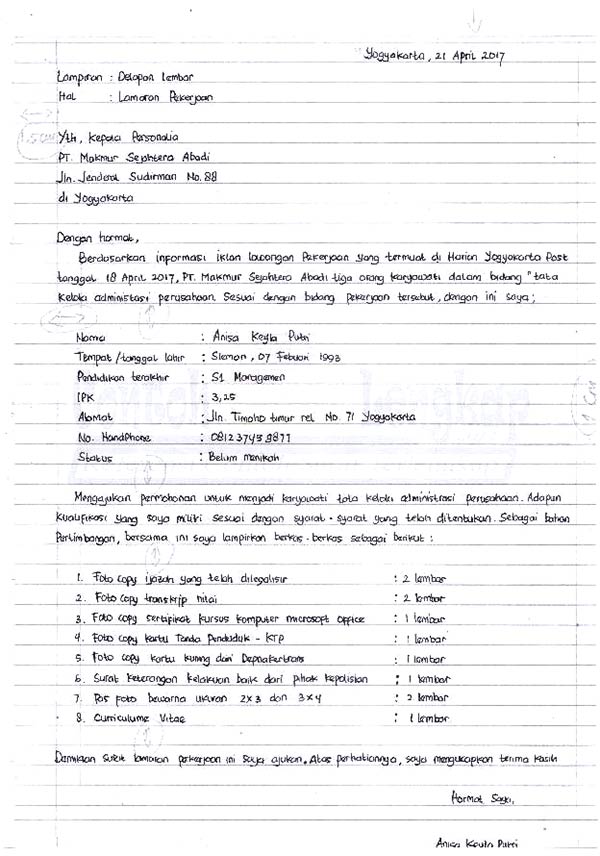 Yogyakarta, 21 April 2017
Lampiran : Delapan lembar
Hal : Lamaran Pekerjaan
1.5 cm
Yth, Kepala Personalia
PT. Makmur Sejahtera Abadi
Jln. Jenderal Sudirman No. 88
di Yogyakarta
Dengan hormat,
Berdasarkan informasi iklan lowongan Pekerjaan yang termuat di Harian Yogyakarta Post
tanggal 18 April 2017, PT. Makmur Sejahtera Abadi tiga orang karyawati dalam bidang "tata
kelola administasi perusahaan. Sesuai dengan bidang pekerjaan tersebut, dengan ini saya;
Nama : Anisa Keyla Putri
Tempat/tanggal lahir : Sleman, 07 Febuari 1993
Pendidikan terakhir : S1 Managemen
IPK : 3,25
Alamat : Jln. Timoho timur rel No. 71 Yogyakarta
No. Handphone : 081237459877
Status : Belum menikah
Contoh Lengkap
1 cm
Mengajukan permohonan untuk menjadi karyawati tata kelola administrasi perusahaan. Adapun
Kualifikasi yang saya miliki sesuai dengan syarat-syarat yang telah ditentukan. Sebagai bahan
Pertimbangan, bersama ini saya lampirkan berkas-berkas sebagai berikut :
1. Foto copy ijazah yang telah dilegalisir : 2 lembar
2. Foto copy transkrip nilai : 2 lembar
3. Foto copy sertipikat kursus komputer microsoft office : 1 lembar
4. Foto copy kartu Tanda Penduduk - KTP : 1 lembar
5. Foto copy kartu kuning dari Depnakertrans : 1 lembar
6. Surat keterangan kelakuan baik dari pihak kepolisian : 1 lembar
7. Pas foto bewarna ukuran 2x3 dan 3x4 : 2 lembar
8. Curriculume Vitae : 1 lembar
Demikian surat lamaran pekerjaan ini saya ajukan. Atas perhatiannya, saya mengucapkan terima kasih
Hormat Saya,
Anisa Keyla Putri